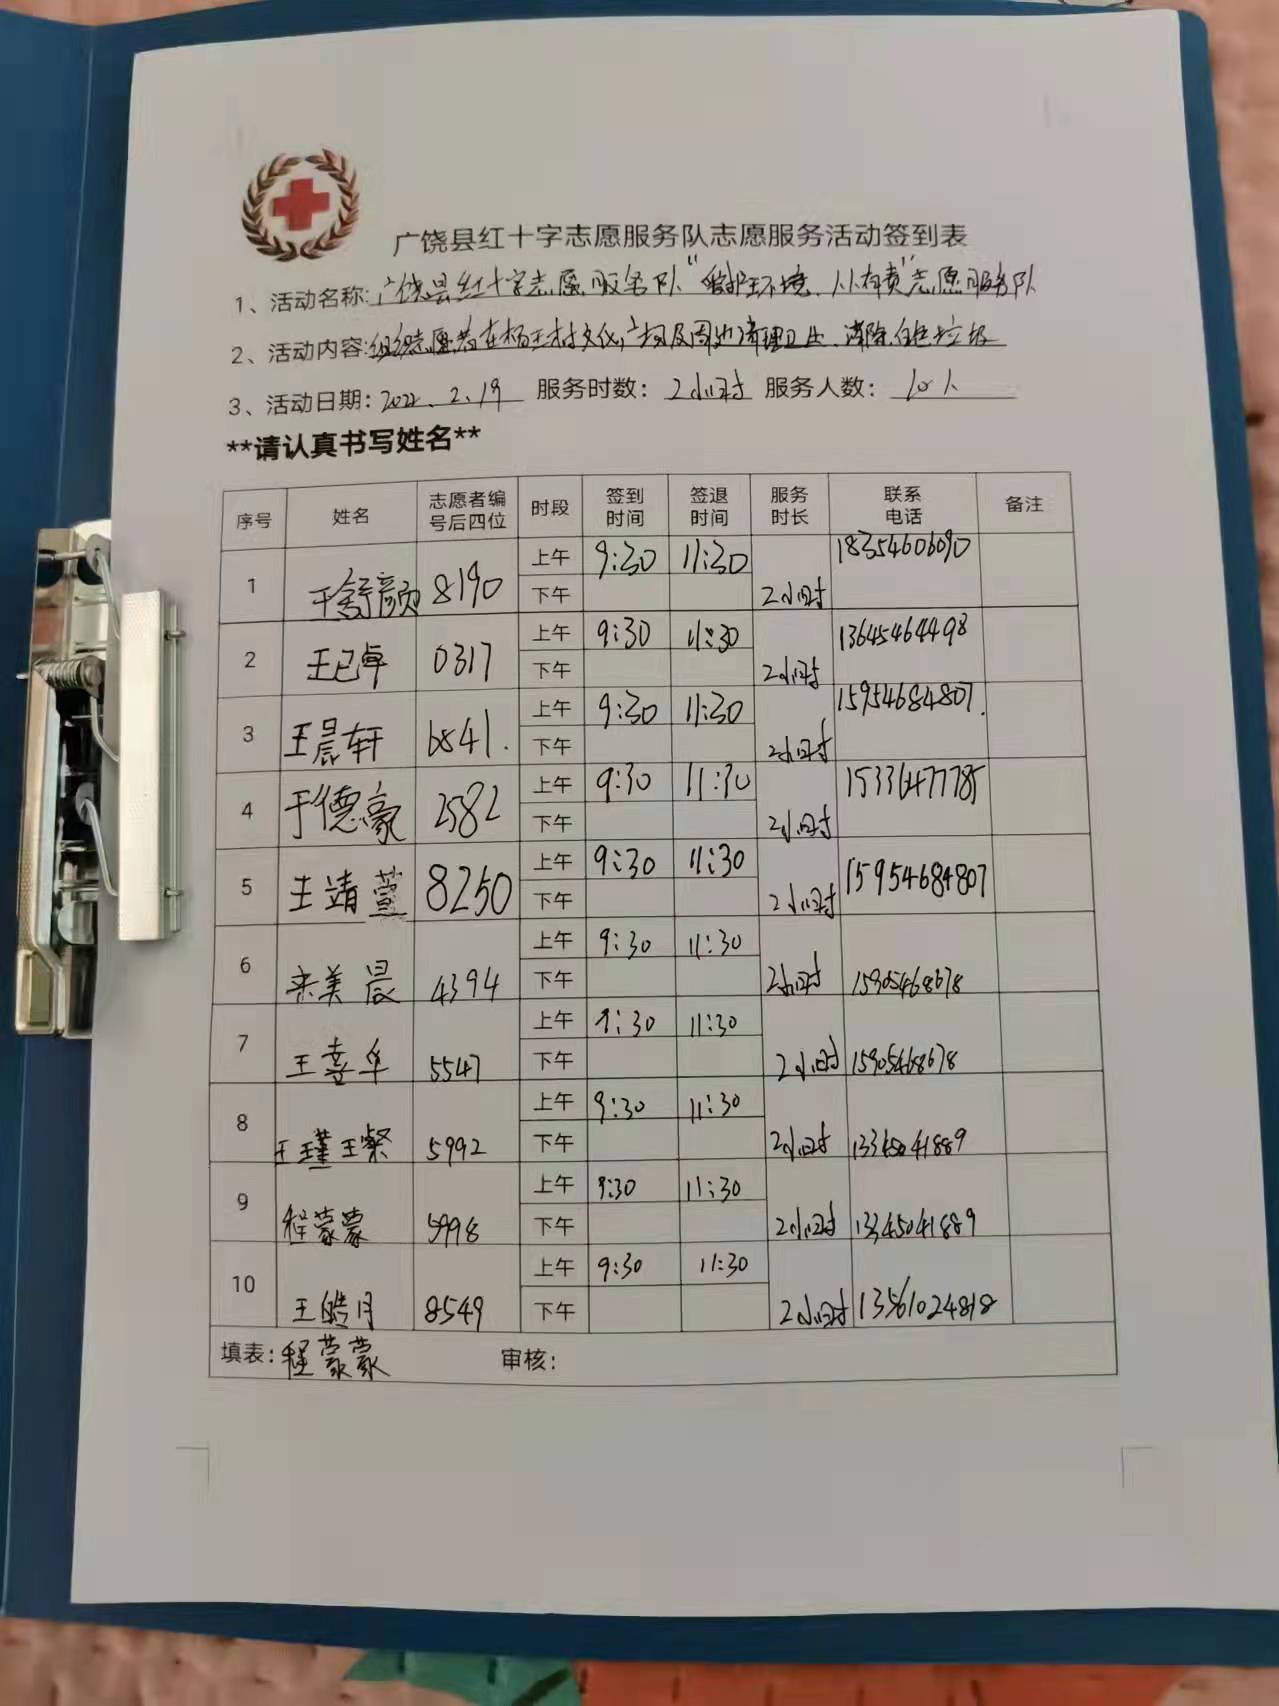 广饶县红十字志愿服务队志愿服务活动签到表
1、活动名称:广饶县红十字志愿服务队“爱护环境、人人有责”志愿服务队
2、活动内容:组织志愿者在杨王村文化广场及周边清理卫生、清除白色垃圾
3、活动日期:2022.2.19 服务时数:2小时 服务人数:10人
**请认真书写姓名**
序号 姓名 志愿者编号后四位 时段 签到时间 签退时间 服务时长 联系电话 备注
1 王舒颜 8190 上午 9:30 11:30 2小时 18354606090
下午
2 王已卓 0317 上午 9:30 11:30 2小时 13645464498
下午
3 王晨轩 6841. 上午 9:30 11:30 2小时 15954684807.
下午
4 于德豪 2582 上午 9:30 11:30 2小时
下午
5 王靖萱 8250 上午 9:30 11:30 2小时 15954684807
下午
6 来美晨 4394 上午 9:30 11:30 2小时 15905468678
下午
7 王喜卓 5547 上午 9:30 11:30 2小时 15905468678
下午
8 王瑾王粲 5992 上午 9:30 11:30 2小时 13345041889
下午
9 程蒙蒙 5998 上午 9:30 11:30 2小时 13345041889
下午
10 王皓月 8549 上午 9:30 11:30 2小时 13561024818
下午
填表:程蒙蒙 审核: